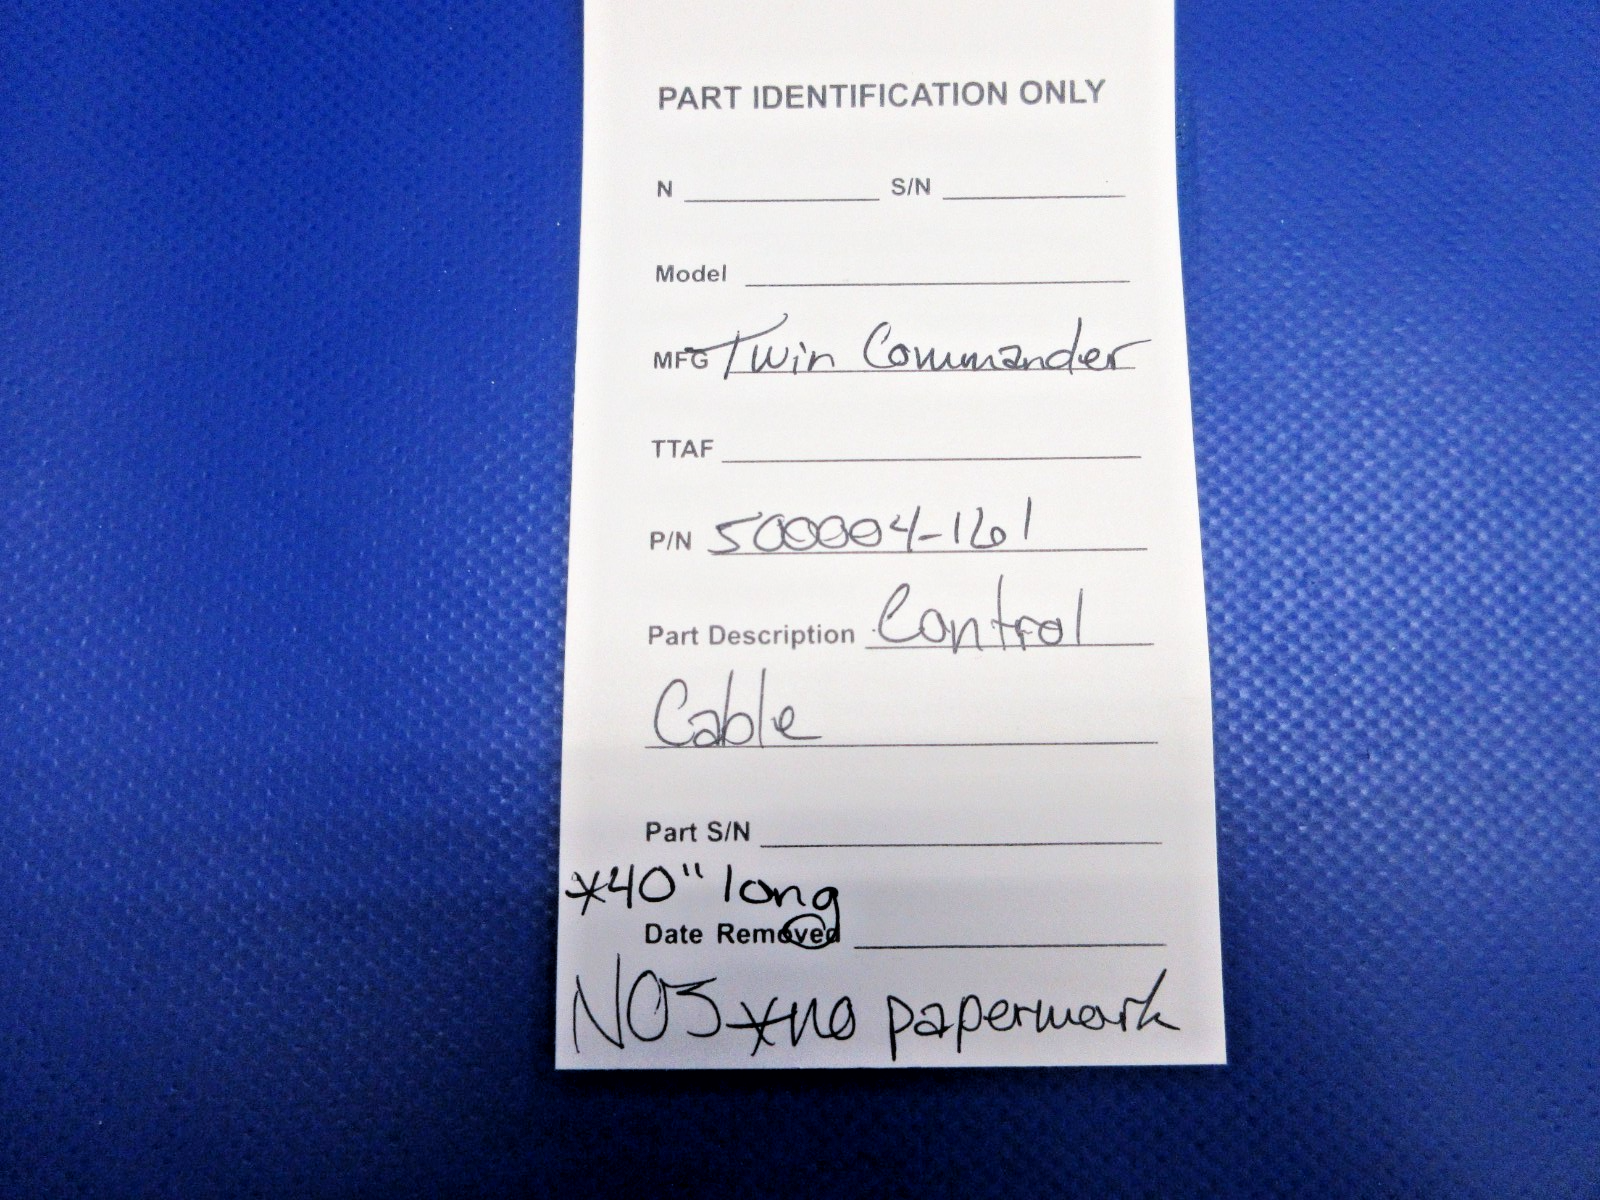 PART IDENTIFICATION ONLY
N S/N
Model
MFG Twin Commander
TTAF
P/N 500004-161
Part Description Control
Cable
Part S/N
*40" long
Date Removed
NOS *no paperwork